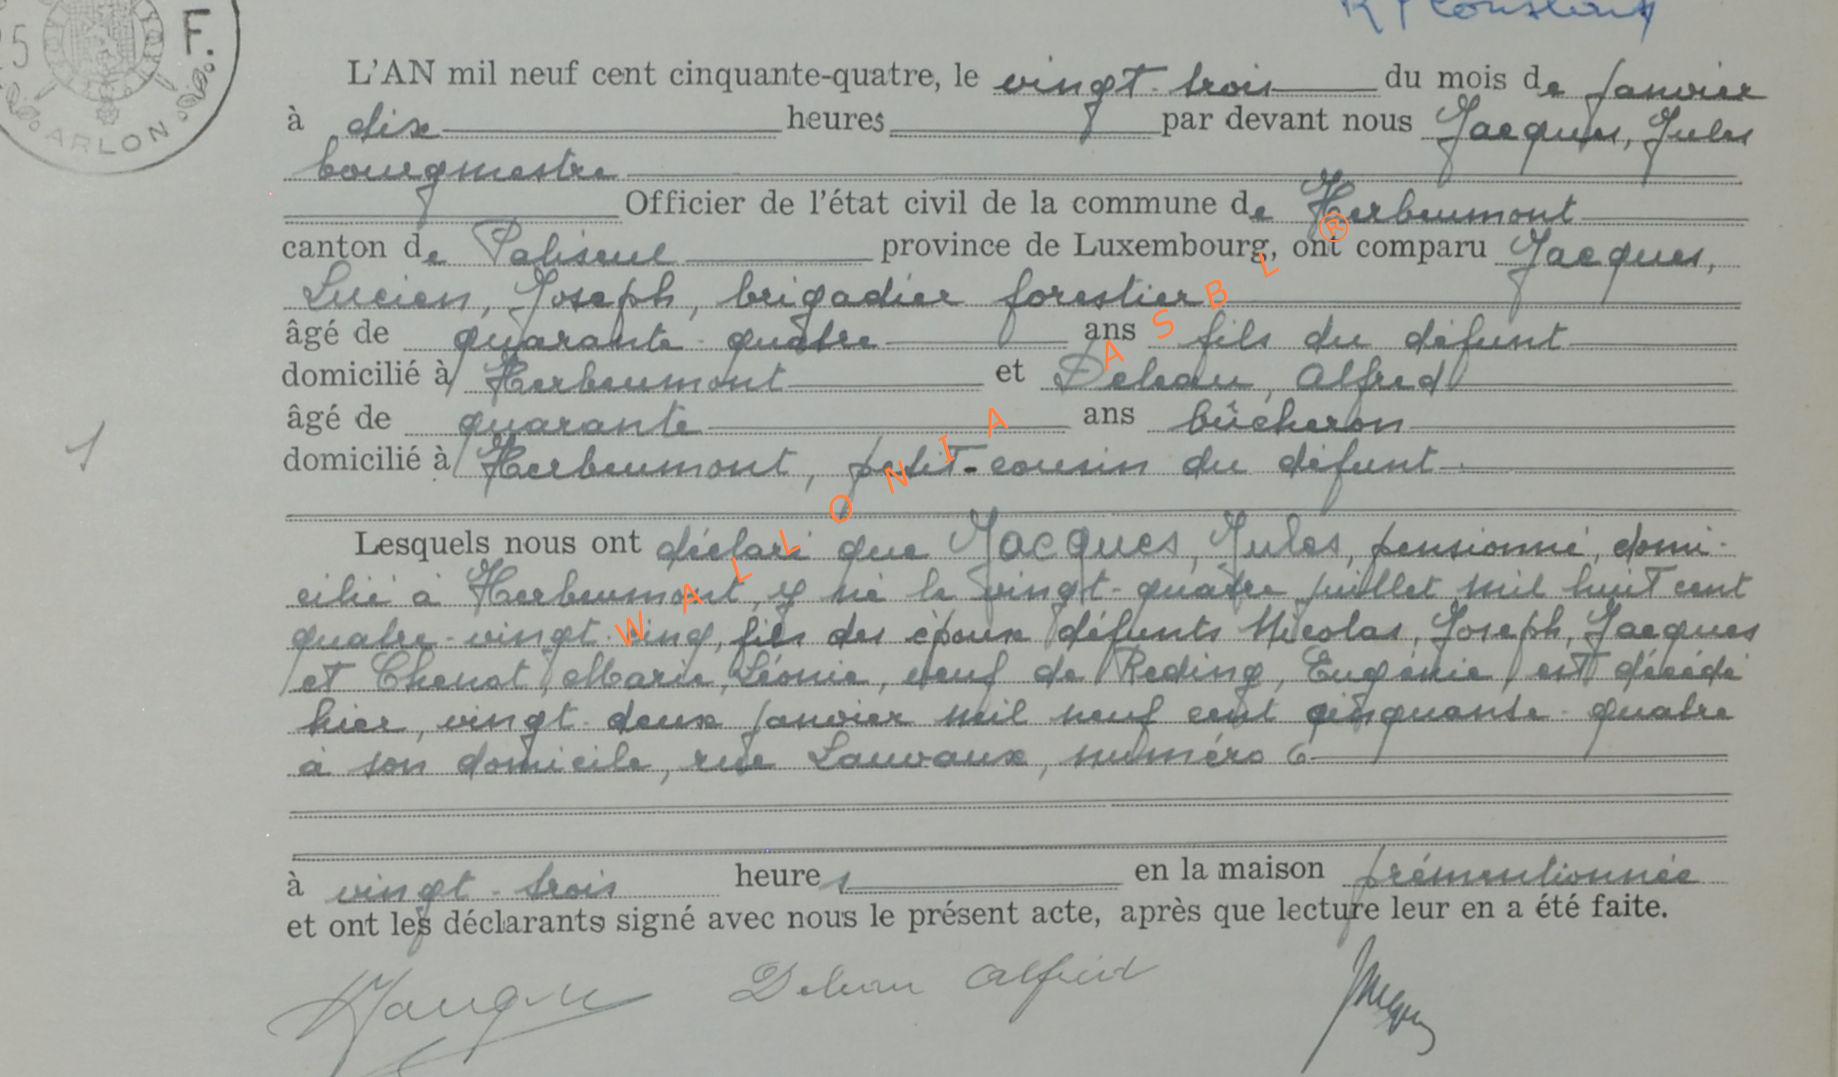 R. Constant
25
F.
ARLON
L'AN mil neuf cent cinquante-quatre, le vingt-trois du mois de janvier
à dix heures par devant nous Jacques, Jules
bourgmestre
Officier de l'état civil de la commune de Herbeumont
canton de Paliseul province de Luxembourg, ont comparu Jacques,
Lucien, Joseph, brigadier forestier
âgé de quarante-quatre ans fils du défunt
domicilié à Herbeumont et Dehau, Alfred
âgé de quarante ans bûcheron
1
domicilié à Herbeumont, petit-cousin du défunt
Lesquels nous ont déclaré que Jacques, Jules, pensionné, domi-
cilié à Herbeumont, y né le vingt-quatre juillet mil huit cent
quatre-vingt-cinq, fils des époux défunts Nicolas, Joseph, Jacques
et Chenot, Marie, Léonie, veuf de Reding, Eugénie, est décédé
hier, vingt-deux janvier mil neuf cent cinquante-quatre
à son domicile, rue Lauvaux, numéro 6
à vingt-trois heures en la maison prémentionnée
et ont les déclarants signé avec nous le présent acte, après que lecture leur en a été faite.
Dehau Alfred
WALLONIA ASBL ®